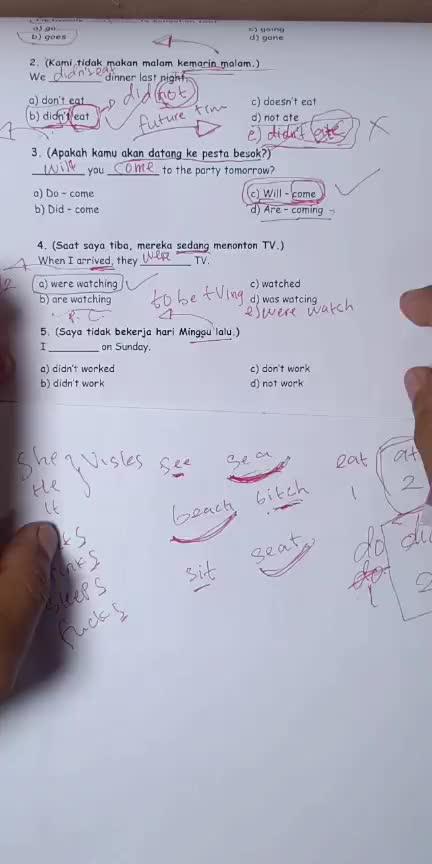 a) go
c) going
b) goes
d) gone
2. (Kami tidak makan malam kemarin malam.)
We didn't eat dinner last night.
did not
a) don't eat
c) doesn't eat
b) didn't eat
d) not ate
future
e) didn't ate
3. (Apakah kamu akan datang ke pesta besok?)
will you come to the party tomorrow?
a) Do - come
c) Will - come
b) Did - come
d) Are - coming
4. (Saat saya tiba, mereka sedang menonton TV.)
When I arrived, they were TV.
2
a) were watching
c) watched
b) are watching
to be + Ving
d) was watcing
e) were watch
5. (Saya tidak bekerja hari Minggu lalu.)
I ________ on Sunday.
a) didn't worked
c) don't work
b) didn't work
d) not work
She
see
sea
eat
He
2
It
beach
bitch
1
sit
seat
do
sleeps
1
2
fucks